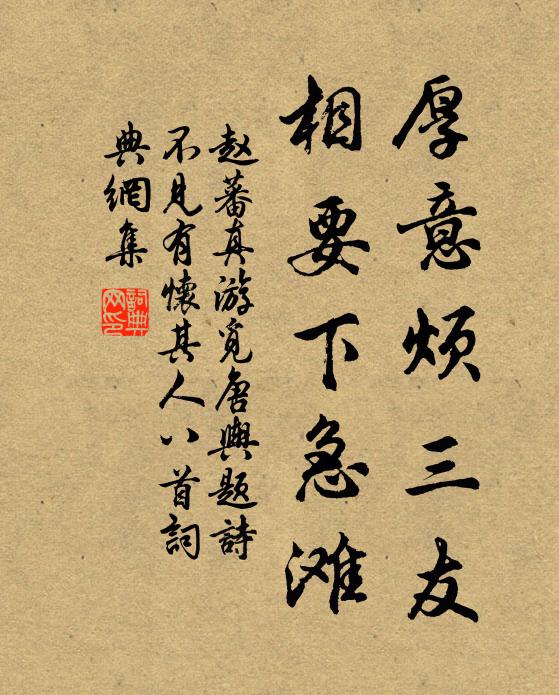 厚意烦三友
相要下急滩
赵蕃真游觅唐舆题詩
不见有懷其人八首詞
典網集
詞典網印